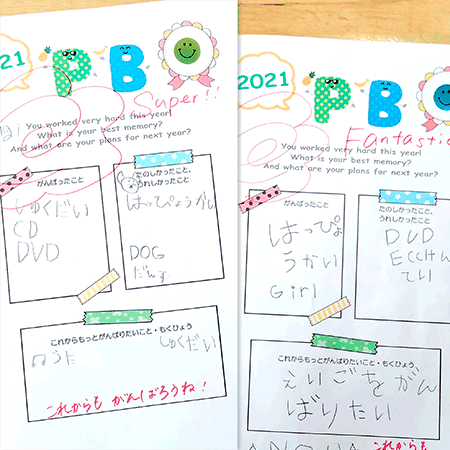 21
P B
Super!!
You worked very hard this year!
What is your best memory?
And what are your plans for next year?
がんばったこと
しゅくだい
CD
DVD
たのしかったこと、
うれしかったこと
はっぴょうかい
DOG
だんす
これからもっとがんばりたいこと・もくひょう
♫うた
しゅくだい
これからも がんばろうね!
2021
P B
Fantastic
You worked very hard this year!
What is your best memory?
And what are your plans for next year?
がんばったこと
はっぴょ
うかい
Girl
たのしかったこと、
うれしかったこと
DVD
てい
これからもっとがんばりたいこと・もくひょう
えいごをがん
ばりたい
これからも